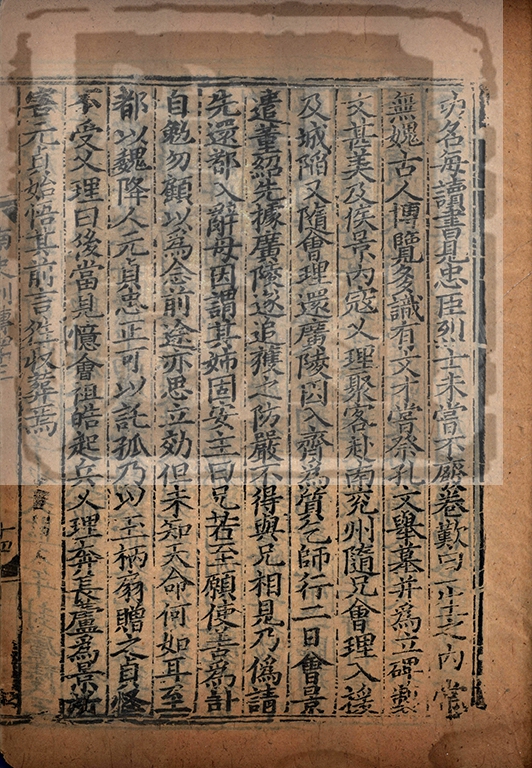 功名每讀書見忠臣烈士未嘗不廢卷歎曰一生之內當
無媿古人博覽多識有文才嘗祭孔文舉墓并為立碑製
文甚美及侯景內寇乂理聚客赴南兖州隨兄會理入援
及城陷又隨會理還廣陵因入齊為質乞師行二日會景
遣董紹先據廣陵遂追獲之防嚴不得與兄相見乃偽請
先還都入辭母因謂其姊固安主曰兄若至願使善為計
自勉勿顧以為念前途亦思立効但未知天命何如耳至
都以魏降人元貞忠正可以託孤乃以玉柄扇贈之貞怪
不受乂理曰後當見憶會祖皓起兵乂理奔長蘆為景所
害元貞始悟其前言往收葬焉
南史列傳四十二
十四